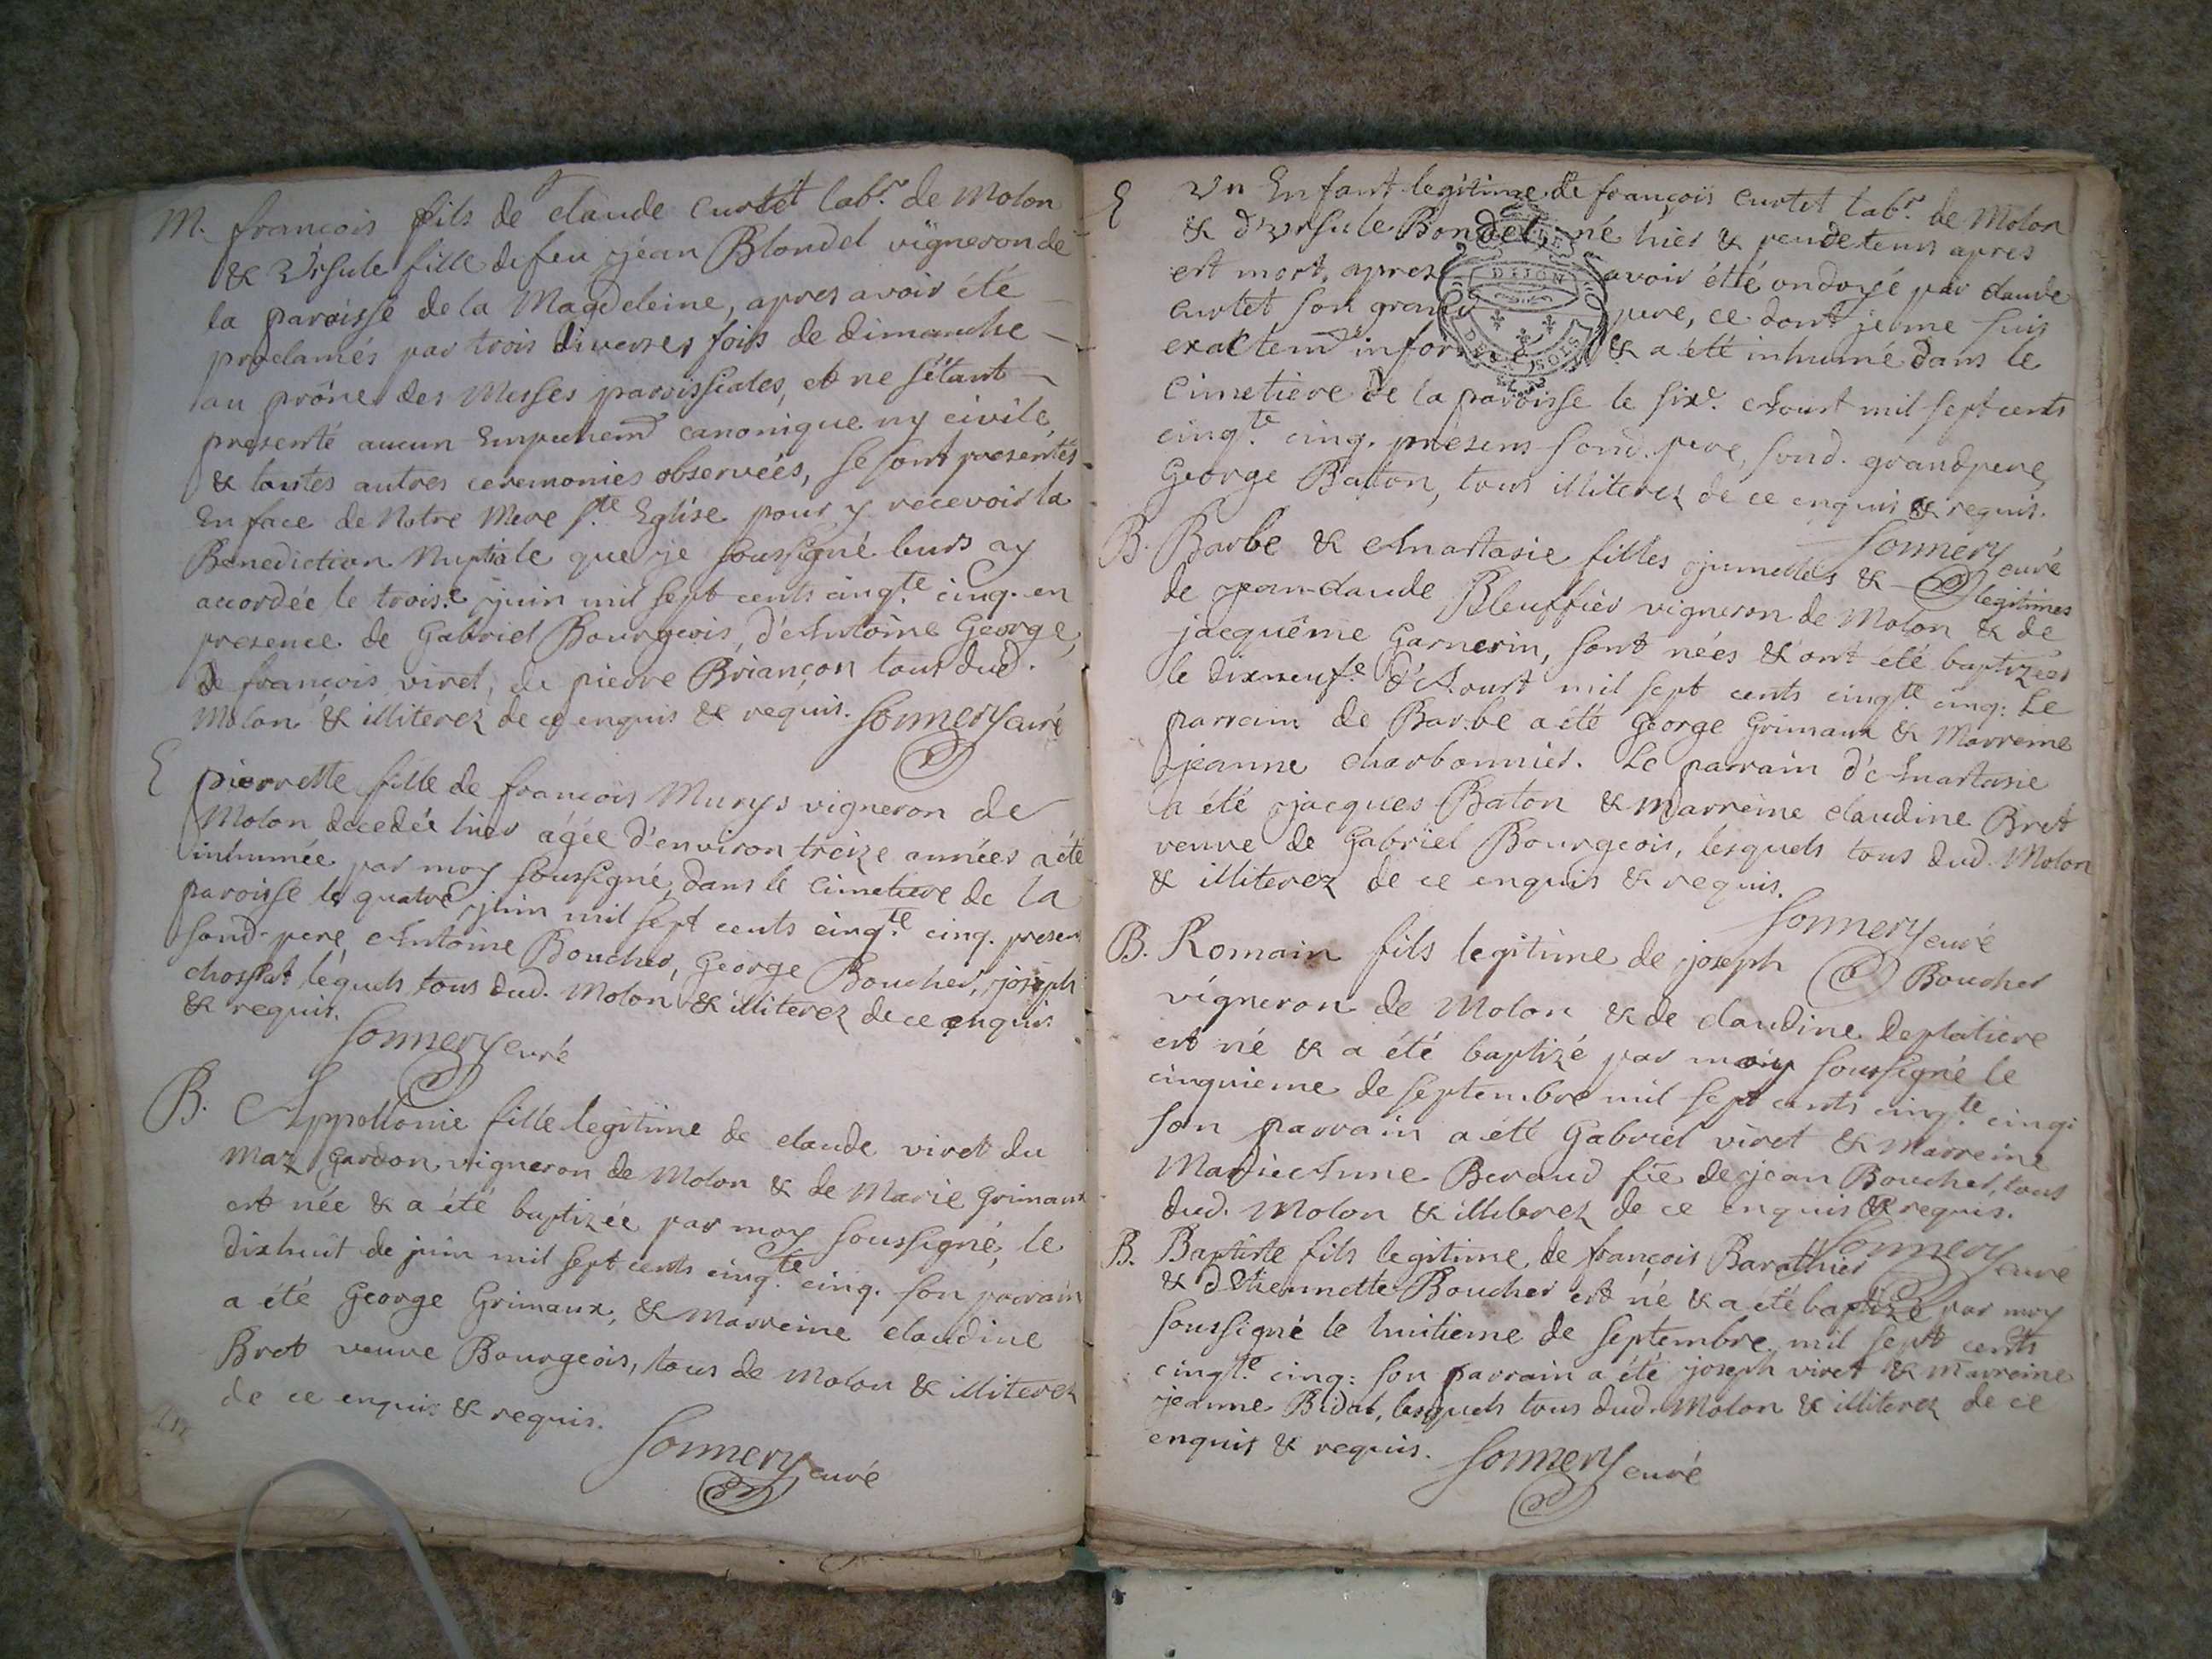 M. françois fils de claude Curtet labr. de Molon
& Ursule fille de feu jean Blondel vigneron de
la paroisse de la Magdeleine, apres avoir été
proclamés par trois diverses fois de dimanche
au prône des Messes paroissiales, et ne s'étant
presenté aucun Empechemt canonique ny civile,
& toutes autres ceremonies observées, se sont presentés
En face de Notre Mere Ste Eglise pour y recevoir la
Benediction Nuptiale que je soussigné leurs ay
accordée le troise. juin mil sept cents cinqte cinq. en
presence de Gabriel Bourgeois, d'Antoine George,
de françois viret, de pierre Briançon tous dud.
Molon & illiterez de ce enquis & requis. Sonnery curé
E pierrette fille de françois Murys vigneron de
Molon decedée hier agée d'environ treize années a été
inhumée par moy soussigné, dans le Cimetiere de la
paroisse le quatre juin mil sept cents cinqte cinq. presens
sond. pere, Antoine Boucher, George Boucher, joseph
chossat lêquels tous dud. Molon & illiterez de ce enquis
& requis.
Sonnery curé
B. Appollonie fille legitime de claude viret du
Maz Gardon, vigneron de Molon & de Marie Grimaux
est née & a été baptizée par moy soussigné, le
dixhuit de juin mil sept cents cinqte cinq. son parrain
a été George Grimaux, & Marreine claudine
Bret veuve Bourgeois, tous de Molon & illiterez
de ce enquis & requis.
Sonnery curé
E Un Enfant legitime de françois curtet labr. de Molon
& d'Ursule Bondel, né hier & peu de tems apres
est mort, apres avoir étté ondoyé par claude
curtet son grand pere, ce dont je me suis
exactemt informé & a été inhumé dans le
Cimetiere de la paroisse le sixe. Aoust mil sept cents
cinqte cinq. présens sond. pere, sond. grandpere,
George Baton, tous illiterez de ce enquis & requis.
Sonnery curé
B. Barbe & Anastasie filles jumelles & legitimes
de jean-claude Bleuffier vigneron de Molon & de
jacquême Garnerin, sont nées & ont été baptizées
le dixneufe. d'Aoust mil sept cents cinqte cinq: Le
parrain de Barbe a été George Grimaux & Marreine
jeanne charbonnier. Le parrain d'Anastasie
a été jacques Baton & Marreine claudine Bret
veuve de Gabriel Bourgeois, lesquels tous dud. Molon
& illiterez de ce enquis & requis.
Sonnery curé
B. Romain fils legitime de joseph Boucher
vigneron de Molon & de claudine Deplatiere
est né & a été baptizé par moy soussigné le
cinquieme de septembre mil sept cents cinqte cinq:
son parrain a été Gabriel viret & Marreine
Marie Anne Beraud fe de jean Boucher, tous
dud. Molon & illiterez de ce enquis & requis.
Sonnery curé
B. Baptiste fils legitime de françois Barathier
& d'Etiennette Boucher est né & a été baptizé par moy
soussigné le huitieme de septembre mil sept cents
cinqte cinq: son parrain a été joseph viret & Marreine
jeanne Bidat, lesquels tous dud. Molon & illiterez de ce
enquis & requis. Sonnery curé
DIJON